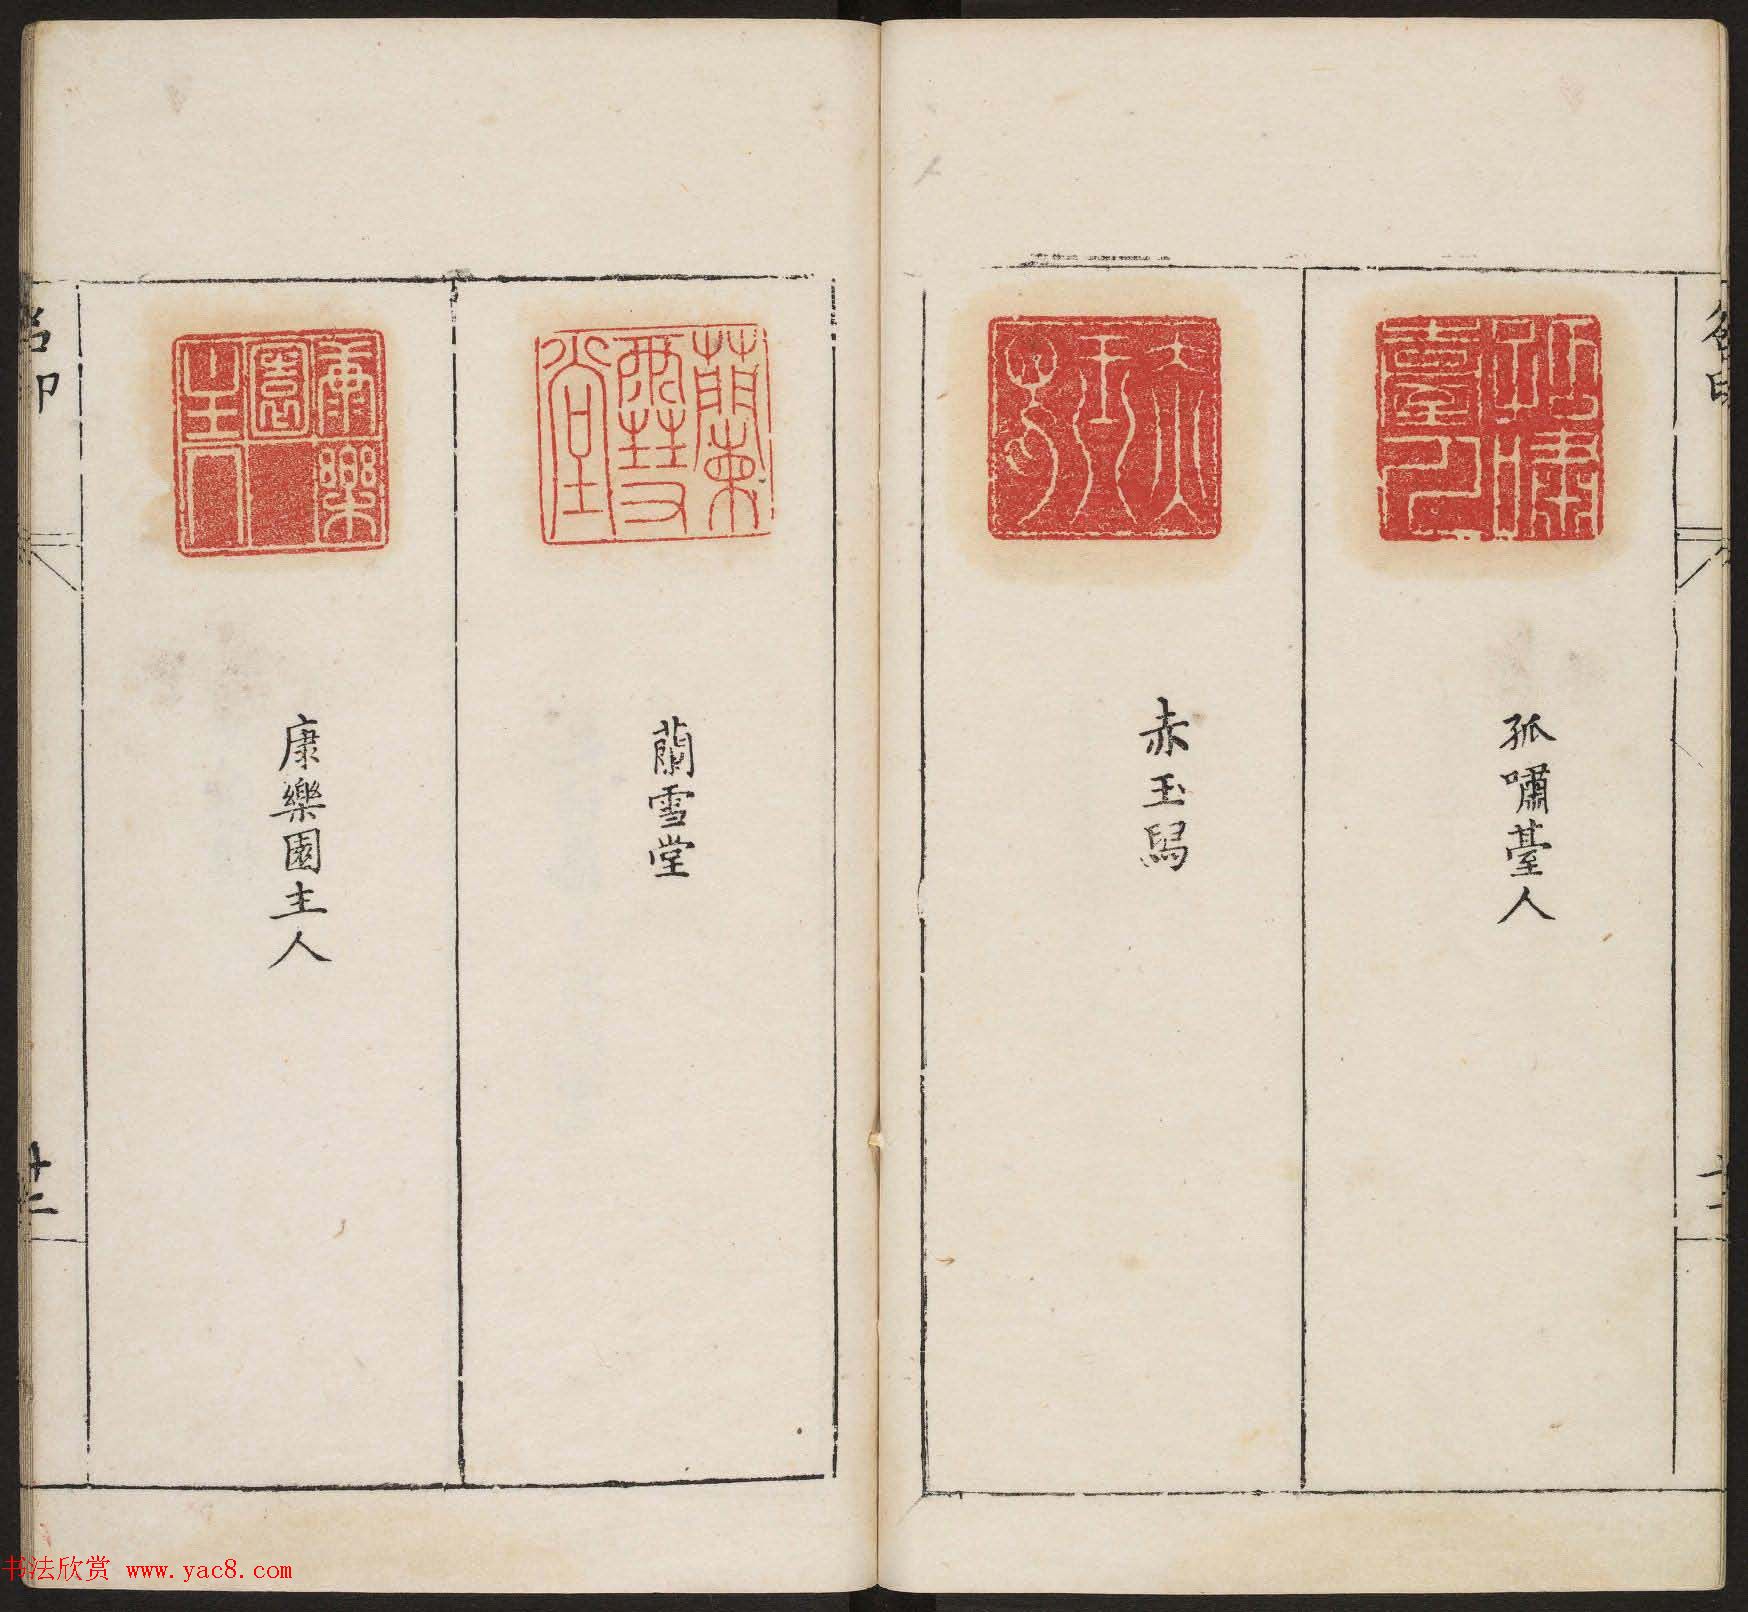 孤嘯臺人
赤玉舄
蘭雪堂
康樂園主人
名印
廿二
书法欣赏 www.yac8.com